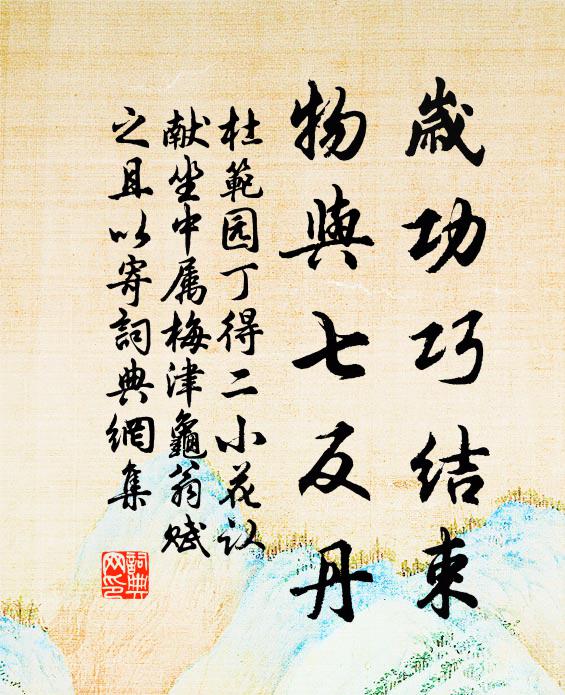 歲功巧結束
物與七反丹
杜範园丁得二小花以
献坐中属梅津龜翁赋
之且以寄詞典網集
詞典
网印